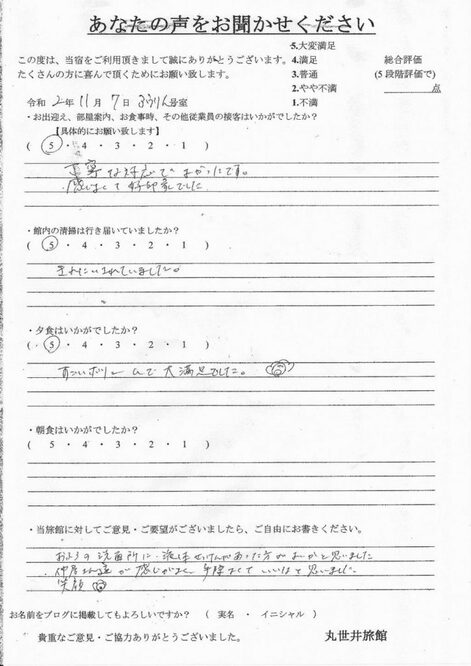 あなたの声をお聞かせください
5.大変満足
この度は、当宿をご利用頂きまして誠にありがとうございます。4.満足 総合評価
たくさんの方に喜んで頂くためにお願い致します。 3.普通 (5段階評価で)
2.やや不満 点
令和 2年 11月 7日 号室 1.不満
・お出迎え、部屋案内、お食事時、その他従業員の接客はいかがでしたか？
【具体的にお願い致します】
( 5 ・ 4 ・ 3 ・ 2 ・ 1 )
丁寧な対応でよかったです。
感じよくて好印象でした
・館内の清掃は行き届いていましたか？
( 5 ・ 4 ・ 3 ・ 2 ・ 1 )
きれいにされていました。
・夕食はいかがでしたか？
( 5 ・ 4 ・ 3 ・ 2 ・ 1 )
すごいボリュームで大満足でした。
・朝食はいかがでしたか？
( 5 ・ 4 ・ 3 ・ 2 ・ 1 )
・当旅館に対してご意見・ご要望がございましたら、ご自由にお書きください。
の洗面所に、液体せっけんがあった方がよいかと思いました
仲居さん達が感じがよく、いいなと思いました
笑顔
お名前をブログに掲載してもよろしいですか？ ( 実名 ・ イニシャル )
貴重なご意見・ご協力ありがとうございました。 丸世井旅館